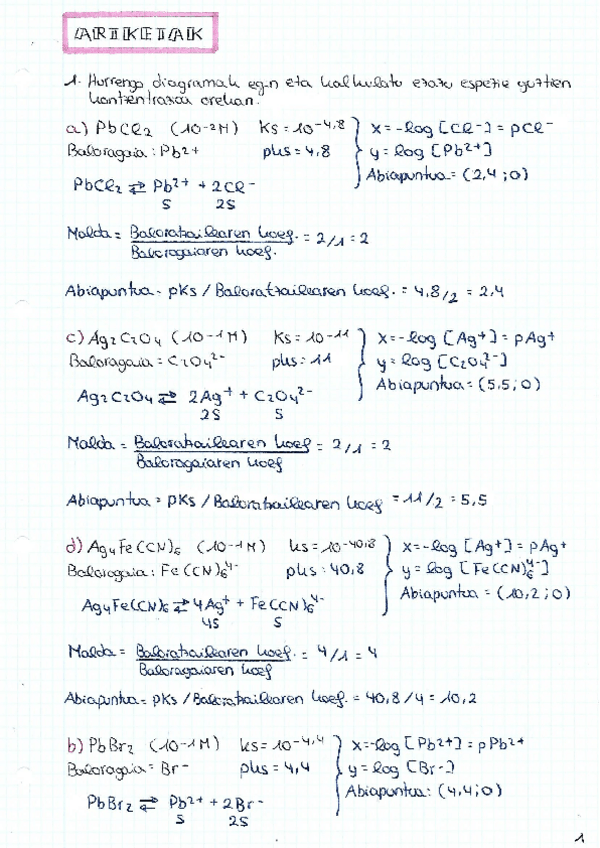 ARIKETAK
1. Hurrengo diagramak egin eta kalkulatu ezazu espezie guztien
kontzentrazioa orekan.
a) PbCl2 (10-2M) Ks = 10-4,8 x = -log [Cl-] = pCl-
Baloragaia : Pb2+ pKs = 4,8 y = log [Pb2+]
Abiapuntua = (2,4 ; 0)
PbCl2 ⇄ Pb2+ + 2Cl-
S 2S
Malda = Baloratzailearen koef. = 2/1 = 2
Baloragaiaren koef.
Abiapuntua = pKs / Baloratzailearen koef. = 4,8/2 = 2,4
c) Ag2C2O4 (10-1M) Ks = 10-11 x = -log [Ag+] = pAg+
Baloragaia = C2O4 2- pKs = 11 y = log [C2O4 2-]
Abiapuntua = (5,5 ; 0)
Ag2C2O4 ⇄ 2Ag+ + C2O4 2-
2S S
Malda = Baloratzailearen koef = 2/1 = 2
Baloragaiaren koef
Abiapuntua = pKs / Baloratzailearen koef = 11/2 = 5,5
d) Ag4Fe(CN)6 (10-1M) Ks = 10-40,8 x = -log [Ag+] = pAg+
Baloragaia : Fe(CN)6 4- pKs : 40,8 y = log [Fe(CN)6 4-]
Abiapuntua = (10,2 ; 0)
Ag4Fe(CN)6 ⇄ 4Ag+ + Fe(CN)6 4-
4S S
Malda = Baloratzailearen koef. = 4/1 = 4
Baloragaiaren koef
Abiapuntua = pKs / Baloratzailearen koef. = 40,8/4 = 10,2
b) PbBr2 (10-1M) Ks = 10-4,4 x = -log [Pb2+] = pPb2+
Baloragaia = Br- pKs = 4,4 y = log [Br-]
Abiapuntua : (4,4 ; 0)
PbBr2 ⇄ Pb2+ + 2Br-
S 2S
1